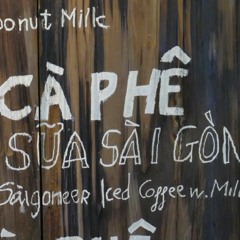 oconut Milk
CÀ PHÊ
SỮA SÀI GÒN
Saigoneer Iced Coffee w. Mil
À PHÊ